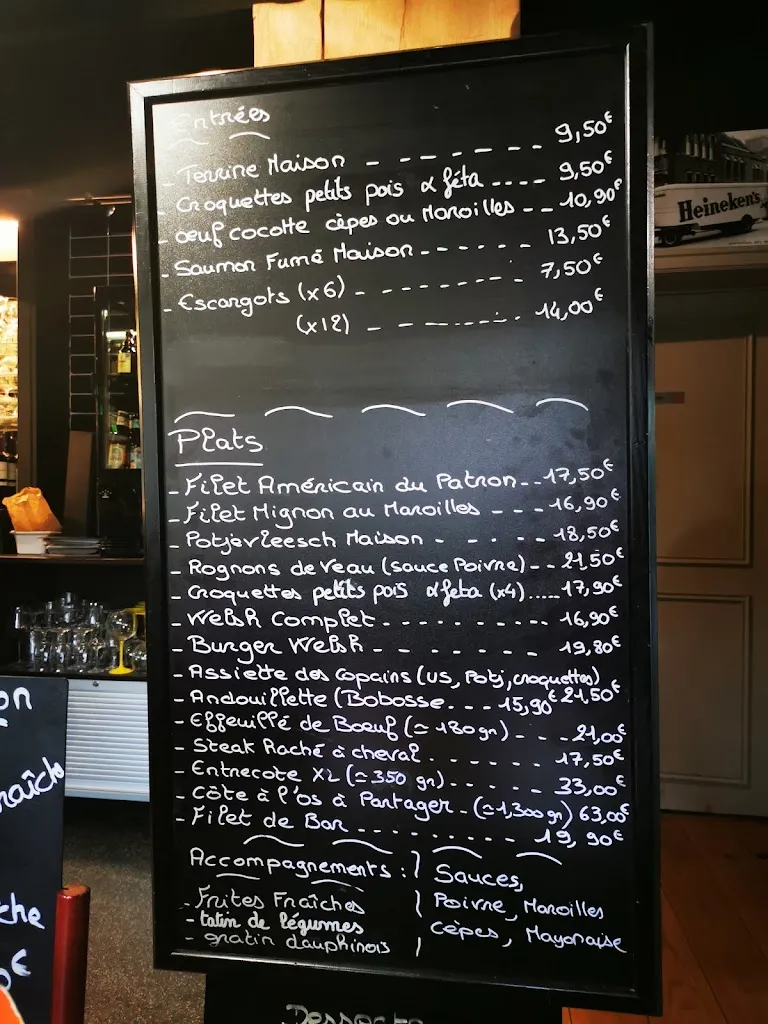 Entrées
- Terrine Maison - - - - - - - 9,50€
- Croquettes petits pois & féta .... 9,50€
- Oeuf cocotte cèpes ou Maroilles - - 10,90€
- Saumon Fumé Maison - - - - - - 13,50€
- Escargots (x6) - - - - - - - 7,50€
(x12) - - - - - - - 14,00€
Heineken's
Plats
- Filet Américain du Patron - - 17,50€
- Filet Mignon au Maroilles - - - 16,90€
- Potjevleesch Maison - - - - 18,50€
- Rognons de Veau (sauce Poivre) - - 21,50€
- Croquettes petits pois & feta (x4) ..... 17,90€
- Welsh Complet - - - - - - - - - 16,90€
- Burger Welsh - - - - - - - 19,80€
- Assiette des Copains (US, Potj, croquettes)
21,50€
- Andouillette (Bobosse - - - 15,90€
- Effeuillé de Boeuf (≃ 180 gr) - - - 21,00€
- Steak Haché à cheval - - - - - - 17,50€
- Entrecote XL (≃ 350 gr) - - - - - 33,00€
- Côte à l'os à Partager - (≃ 1,300 gr) 63,00€
- Filet de Bar - - - - - - - - - 19,90€
Accompagnements :
- Frites Fraîches
- tatin de légumes
- gratin dauphinois
Sauces,
Poivre, Maroilles
Cèpes, Mayonaise
Desserts
on
raîch
che
€